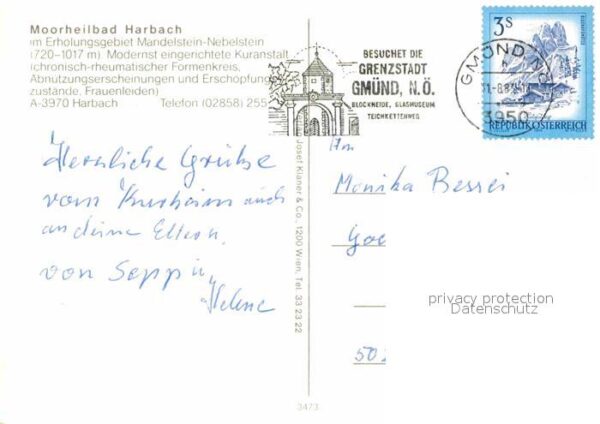 Moorheilbad Harbach
im Erholungsgebiet Mandelstein-Nebelstein
(720-1017 m) Modernst eingerichtete Kuranstalt
(chronisch-rheumatischer Formenkreis,
Abnutzungserscheinungen und Erschöpfung
zustände, Frauenleiden)
A-3970 Harbach Telefon (02858) 255
Herzliche Grüße
vom Kurheim auch
an deine Eltern,
von Seppi u.
Helene
Josef Klaner & Co., 1200 Wien, Tel. 33 23 22
3473
BESUCHET DIE
GRENZSTADT
GMÜND, N.Ö.
BLOCKHEIDE, GLASMUSEUM
TEICHKETTENWEG
GMÜND NÖ
3950
3S
REPUBLIK ÖSTERREICH
An
Monika Bessei
Goe
502
privacy protection
Datenschutz